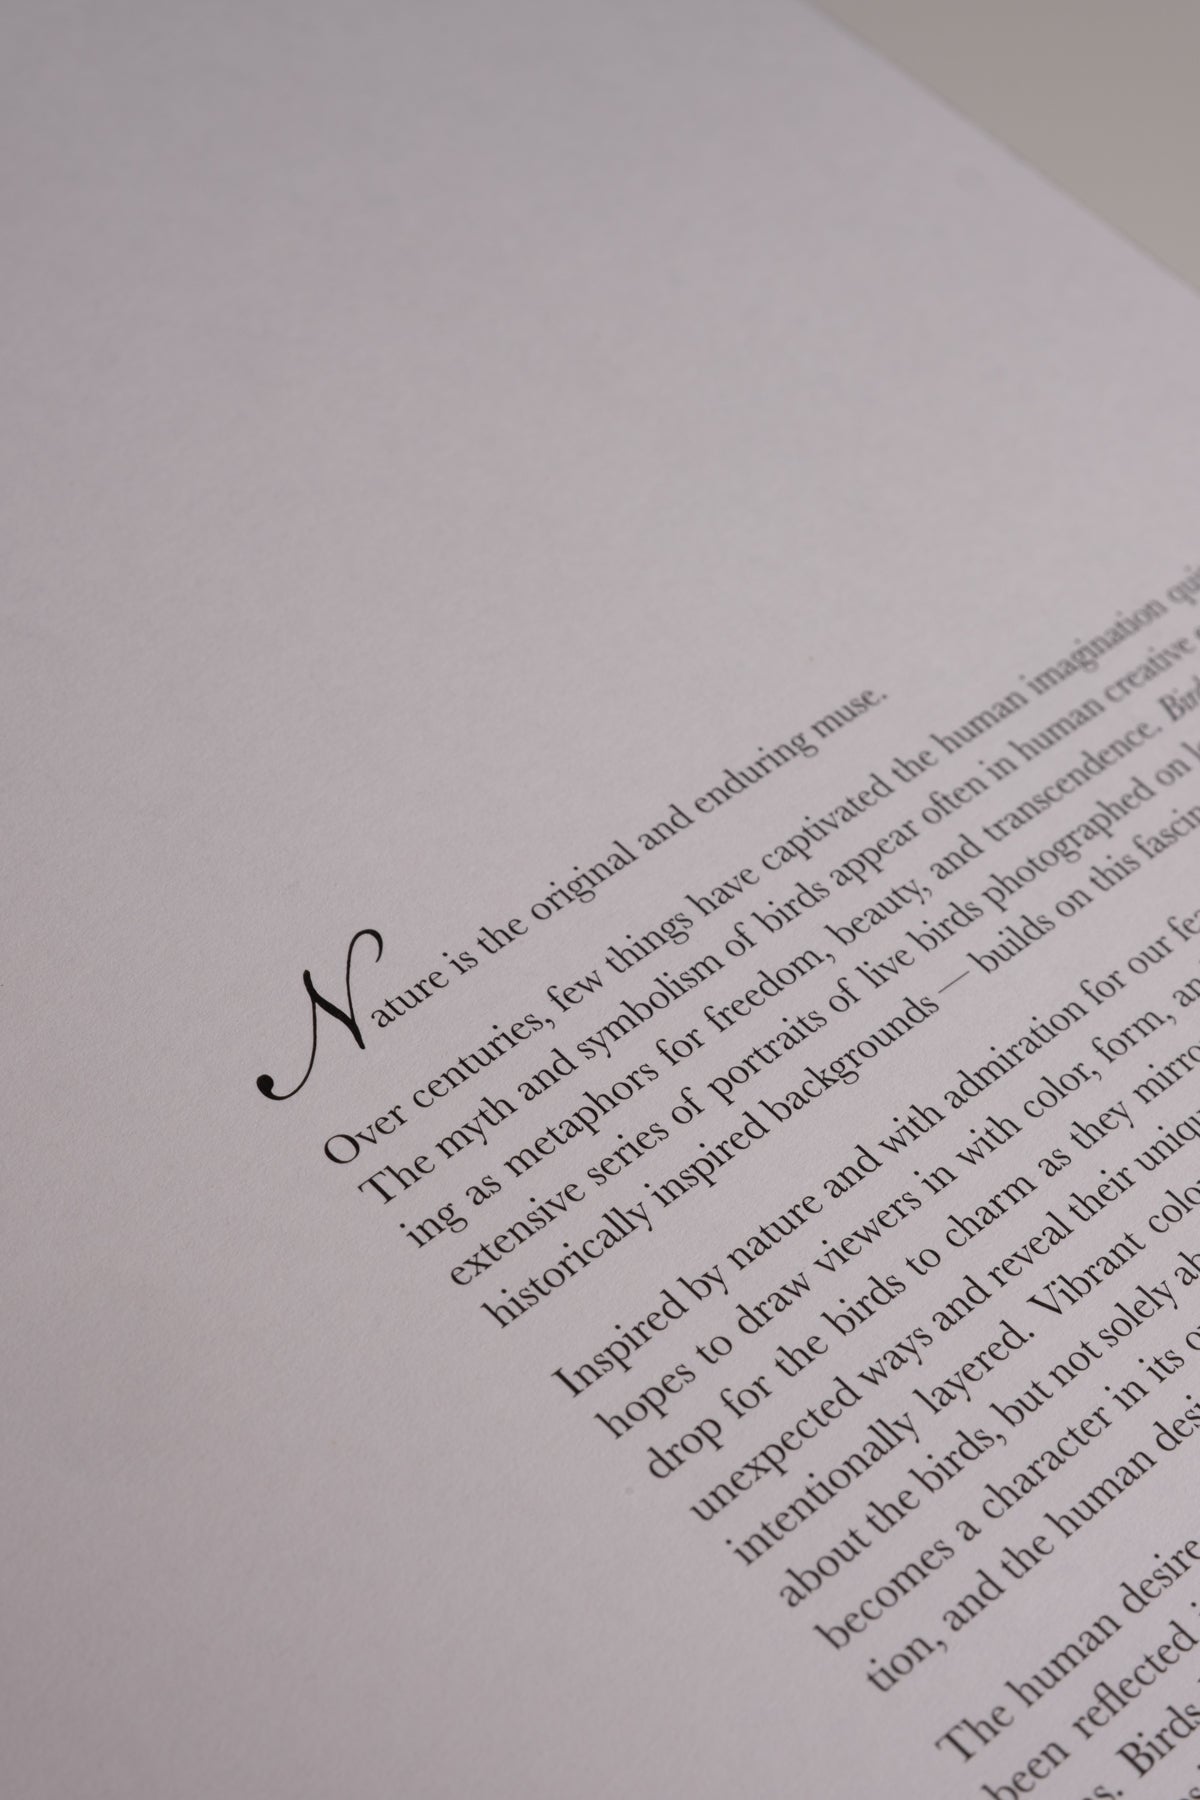 Nature is the original and enduring muse.
Over centuries, few things have captivated the human imagination
The myth and symbolism of birds appear often in human creative
ing as metaphors for freedom, beauty, and transcendence.
extensive series of portraits of live birds photographed on
historically inspired backgrounds — builds on this
Inspired by nature and with admiration for our
hopes to draw viewers in with color, form,
drop for the birds to charm as they
unexpected ways and reveal their
intentionally layered. Vibrant
about the birds, but not solely
becomes a character in its
tion, and the human
The human desire
been reflected
Birds